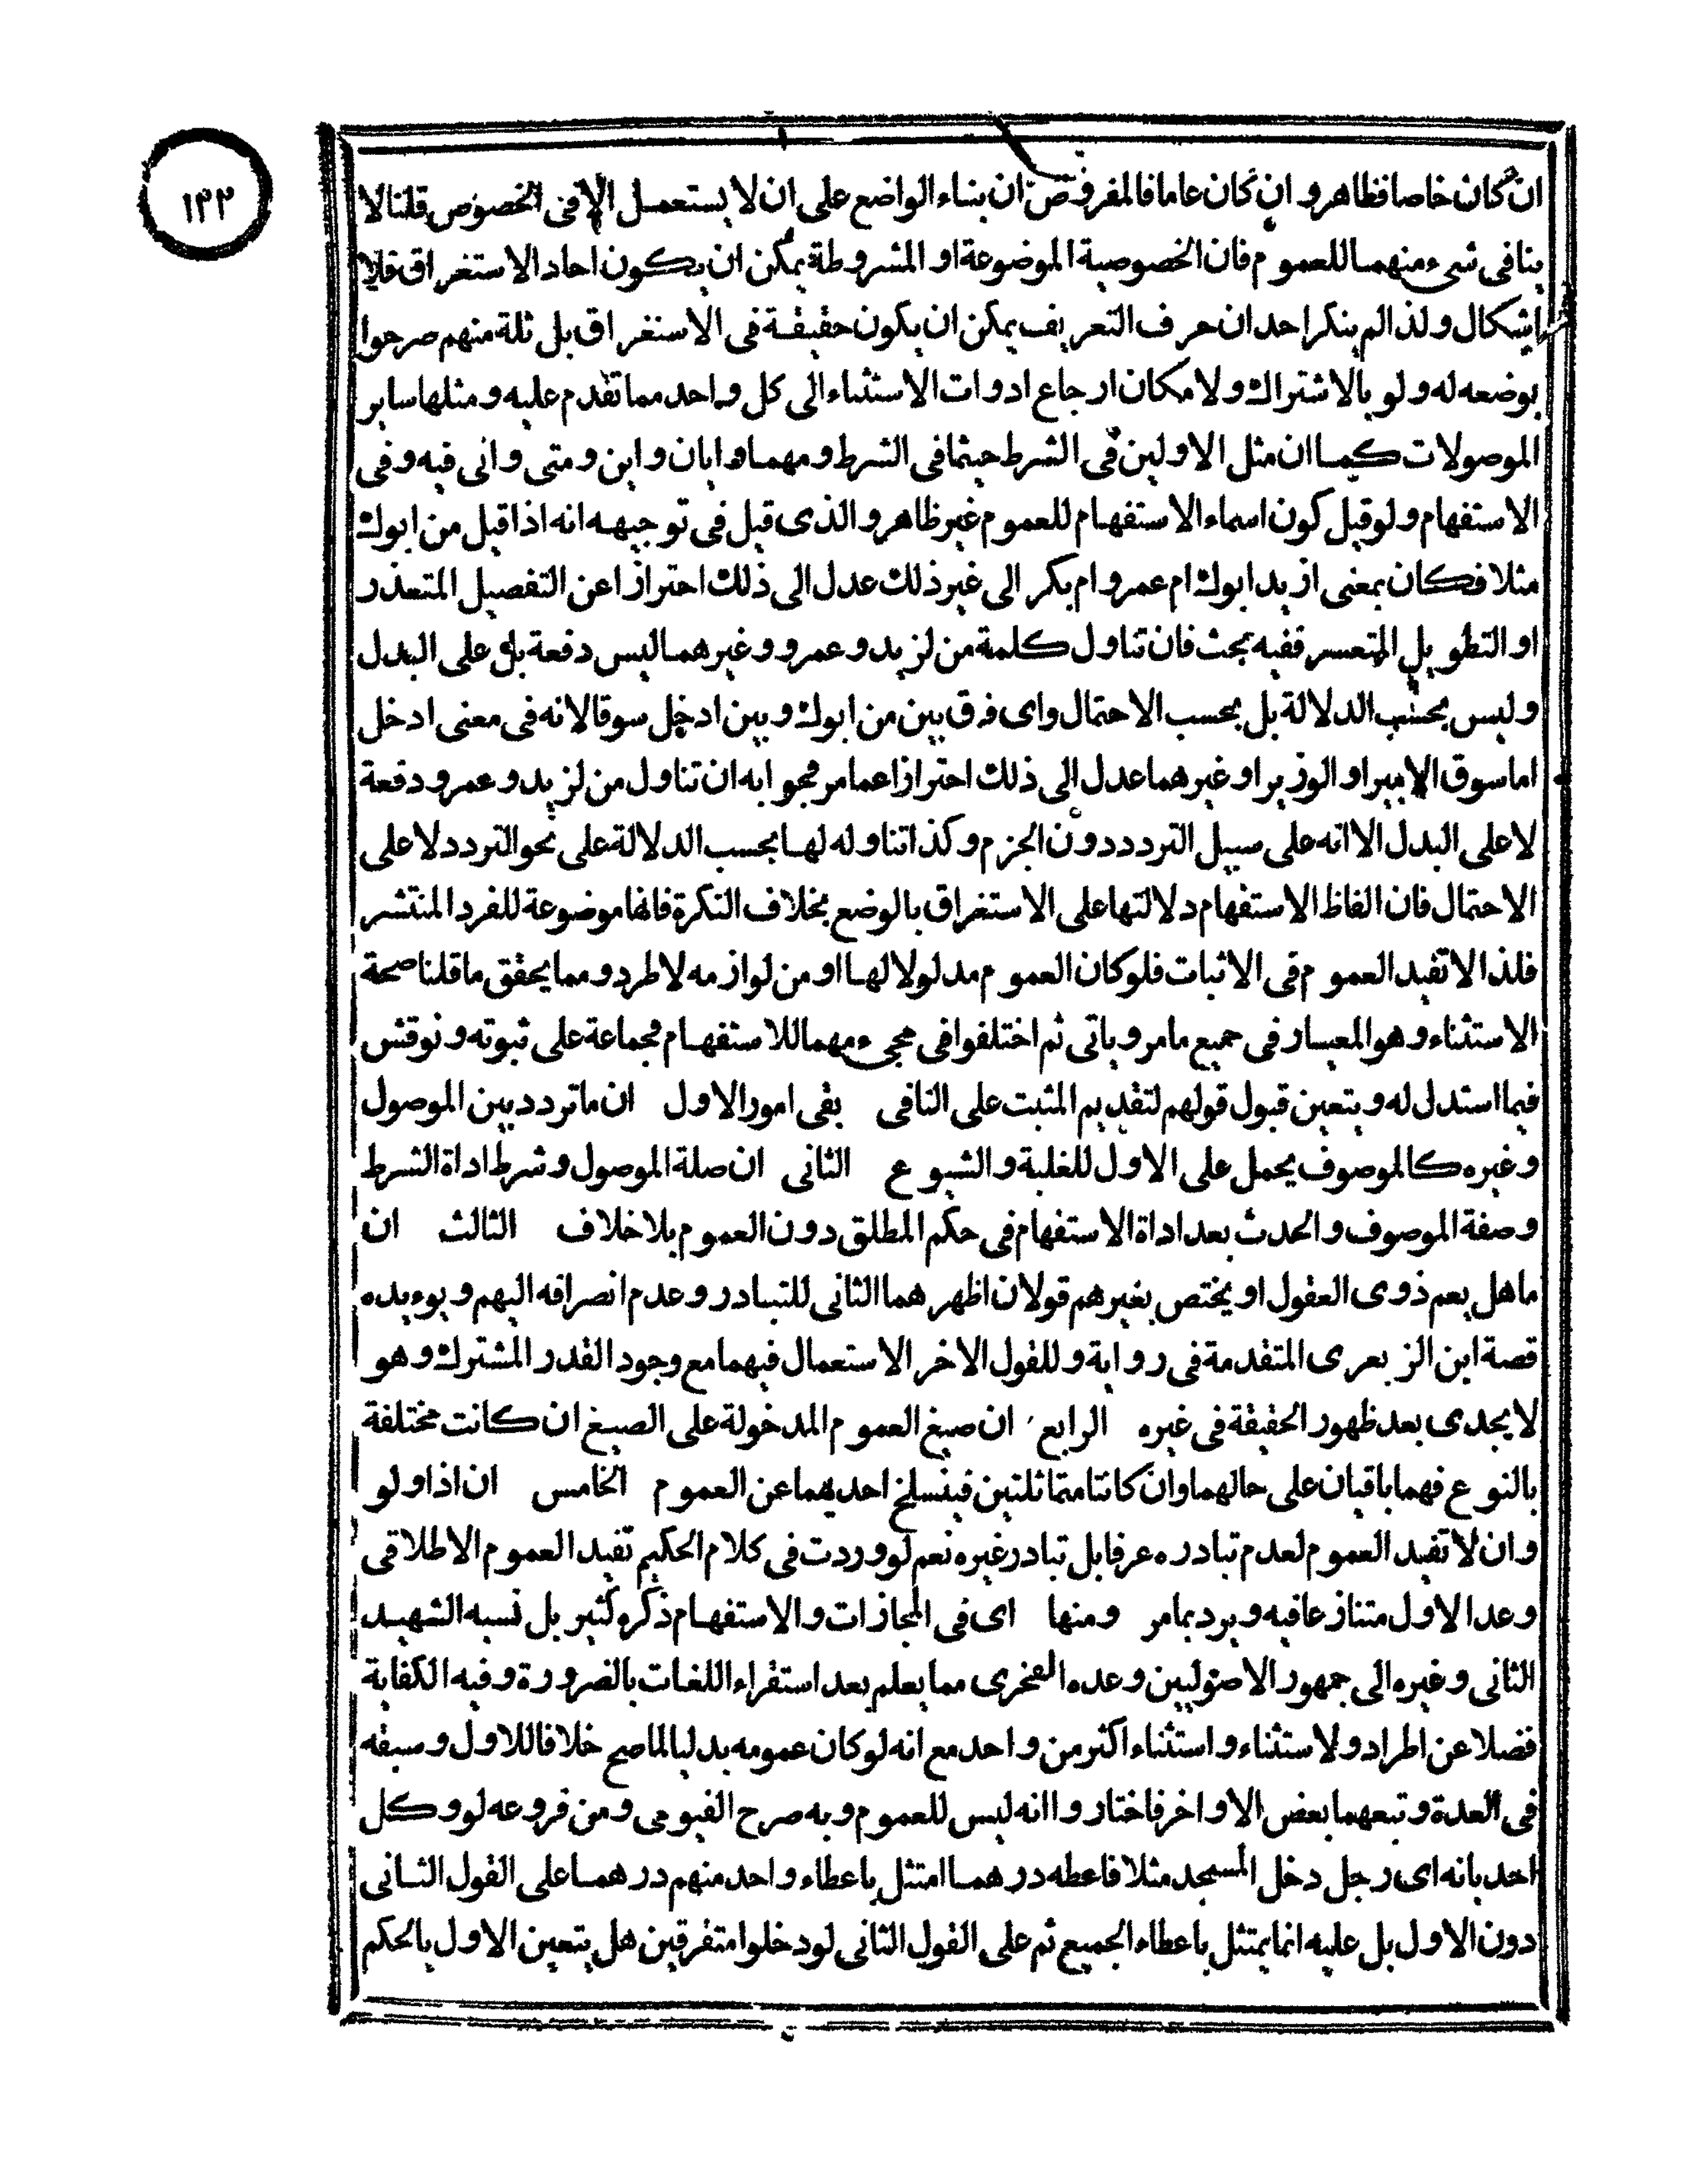 ١٣٣
ان كان خاصا فظاهر و ان كان عاما فالمفروض ان بناء الواضع على ان لا يستعمل الا فى الخصوص قلنا لا
ينافى شىء منهما للعموم فان الخصوصية الموضوعة او المشروطة يمكن ان يكون احاد الاستغراق فلا
اشكال و لذا لم ينكر احد ان حرف التعريف يمكن ان يكون حقيقة فى الاستغراق بل ثلة منهم صرحوا
بوضعه له و لو بالاشتراك و لا مكان ارجاع ادوات الاستثناء الى كل واحد مما تقدم عليه و مثلها ساير
الموصولات كما ان مثل الاولين فى الشرط حيثما فى الشرط و مهما و ايان و اين و متى و انى فيه و فى
الاستفهام و لو قيل كون اسماء الاستفهام للعموم غير ظاهر و الذى قيل فى توجيهه انه اذا قيل من ابوك
مثلا فكان بمعنى ازيد ابوك ام عمرو ام بكر الى غير ذلك عدل الى ذلك احترازا عن التفصيل المتعذر
او التطويل المتعسر ففيه بحث فان تناول كلمة من لزيد و عمرو و غيرهما ليس دفعة بل على البدل
و ليس بحسب الدلالة بل بحسب الاحتمال واى فرق بين من ابوك و بين ادخل سوقا لانه فى معنى ادخل
اما سوق الامير او الوزير او غيرهما عدل الى ذلك احترازا عما مر فجوابه ان تناول من لزيد و عمرو دفعة
لا على البدل الا انه على سبيل التردد دون الجزم و كذا تناوله لها بحسب الدلالة على نحو التردد لا على
الاحتمال فان الفاظ الاستفهام دلالتها على الاستغراق بالوضع بخلاف النكرة فانها موضوعة للفرد المنتشر
فلذا لا تفيد العموم فى الاثبات فلو كان العموم مدلولا لها او من لوازمه لا طرد و مما يحقق ما قلنا صحة
الاستثناء و هو المعيار فى جميع ما مر و ياتى ثم اختلفوا فى مجىء مهما للاستفهام فجماعة على ثبوته و نوقش
فيما استدل له و يتعين قبول قولهم لتقديم المثبت على النافى بقى امور الاول ان ما تردد بين الموصول
و غيره كالموصوف يحمل على الاول للغلبة و الشيوع الثانى ان صلة الموصول و شرط اداة الشرط
و صفة الموصوف و الحدث بعد اداة الاستفهام فى حكم المطلق دون العموم بلا خلاف الثالث ان
ما هل يعم ذوى العقول او يختص بغيرهم قولان اظهرهما الثانى للتبادر و عدم انصرافه اليهم و يوءيده
قصة ابن الزبعرى المتقدمة فى رواية و للقول الاخر الاستعمال فيهما مع وجود القدر المشترك و هو
لا يجدى بعد ظهور الحقيقة فى غيره الرابع ان صيغ العموم المدخولة على الصيغ ان كانت مختلفة
بالنوع فهما باقيان على حالهما وان كانتا متماثلتين فينسلخ احديهما عن العموم الخامس ان اذا و لو
و ان لا تفيد العموم لعدم تبادره عرفا بل تبادر غيره نعم لو وردت فى كلام الحكيم تفيد العموم الاطلاقى
و عدا الاول متنازعا فيه و يرد بما مر و منها اى فى المجازات و الاستفهام ذكره كثير بل نسبه الشهيد
الثانى و غيره الى جمهور الاصوليين و عده الفخرى مما يعلم بعد استقراء اللغات بالضرورة و فيه الكفاية
فضلا عن اطراد و لاستثناء و استثناء اكثر من واحد مع انه لو كان عمومه بدليا لما صح خلافا للاول و سبقه
فى العدة و تبعهما بعض الاواخر فاختاروا انه ليس للعموم و به صرح الفيومى و من فروعه لو وكل
احد بانه اى رجل دخل المسجد مثلا فاعطه درهما امتثل باعطاء واحد منهم درهما على القول الثانى
دون الاول بل عليه انما يمتثل باعطاء الجميع ثم على القول الثانى لو دخلوا متفرقين هل يتعين الاول بالحكم